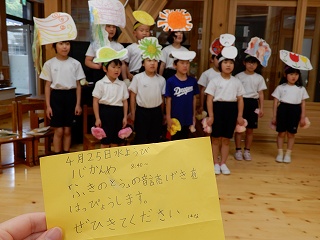 4月25日水ようび
1じかんめ 8:40〜
「ふきのとう」の音読げき
はっぴょうします。
ぜひきてください
Dodgers